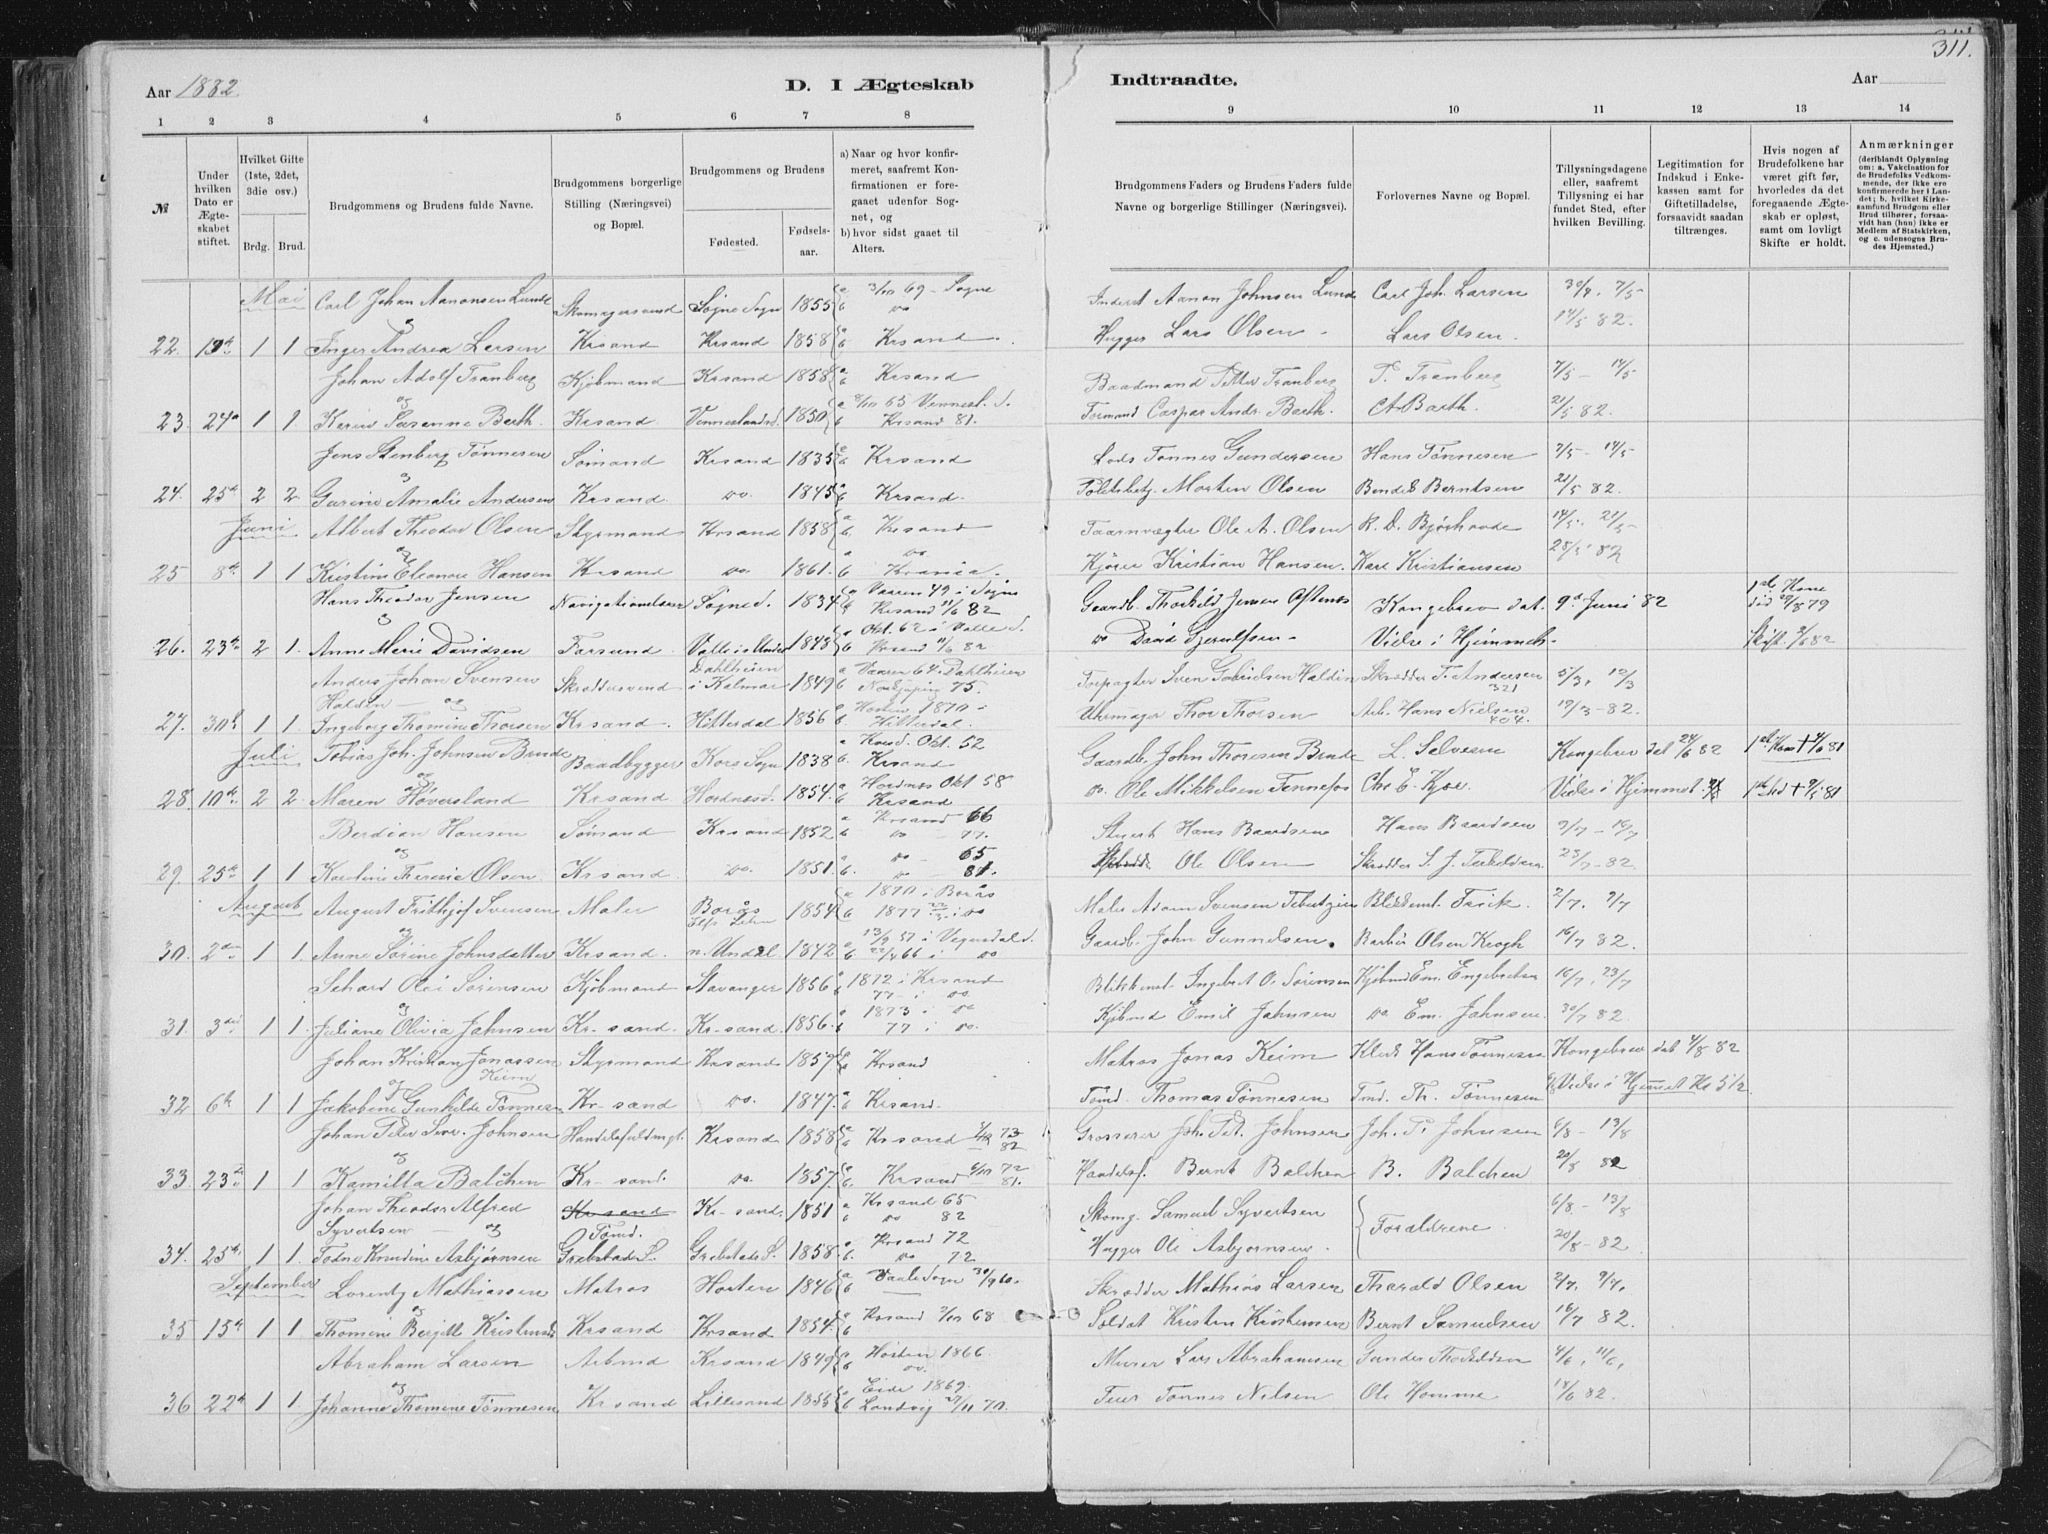 311.
Aar 1882.
D. I Ægteskab
Indtraadte.
Aar
1 2 3 4 5 6 7 8 9 10 11 12 13 14
№
Under hvilken Dato er Ægteskabet stiftet.
Hvilket Gifte (1ste, 2det, 3die osv.)
Brdg. Brud.
Brudgommens og Brudens fulde Navne.
Brudgommens borgerlige Stilling (Næringsvei) og Bopæl.
Brudgommens og Brudens
Fødested. Fødselsaar.
a) Naar og hvor konfirmeret, saafremt Konfirmationen er foregaaet udenfor Sognet, og
b) hvor sidst gaaet til Alters.
Brudgommens Faders og Brudens Faders fulde Navne og borgerlige Stillinger (Næringsvei).
Forlovernes Navne og Bopæl.
Tillysningsdagene eller, saafremt Tillysning ei har fundet Sted, efter hvilken Bevilling.
Legitimation for Indskud i Enkekassen samt for Giftetilladelse, forsaavidt saadan tiltrænges.
Hvis nogen af Brudefolkene har været gift før, hvorledes da det foregaaende Ægteskab er opløst, samt om lovligt Skifte er holdt.
Anmærkninger
(deriblandt Oplysning om: a. Vakcination for de Brudefolks Vedkommende, der ikke ere konfirmerede her i Landet; b. hvilket Kirkesamfund Brudgom eller Brud tilhører, forsaavidt han (hun) ikke er Medlem af Statskirken, og c. udensogns Brudes Hjemsted.)
Mai Carl Johan Aanonsen Lunde Skomagersvend Søgne Sogn 1855 a 3/10 69 - Søgne b do Inderst Aanon Johnsen Lunde Carl Joh. Larsen 30/4. 7/5
og
22. 1 1 Inger Andrea Larsen Krsand Krsand 1858 a b Krsand. Hugger Lars Olsen - Lars Olsen. 14/5 82.
Johan Adolf Tranberg Kjøbmand Krsand 1858 a b Krsand Baadmand Petter Tranberg P. Tranberg 7/5 - 14/5
og
23. 24 1 1. Karen Susanne Barth. Krsand. 1850 65 Krsand 81. Formand Caspar Andr. Barth. A Barth. 21/5 82.
Jens Stenberg Tønnesen Sømand Krsand 1835 a b Krsand Lods Tønnes Gundersen Hans Tønnesen 7/5 - 14/5
og
24. 25de 2 2. Gurine Amalie Andersen Krsand do. 1845 a b Krsand. Morten Olsen Bendt Berntsen 21/5 82.
Juni Albert Theodor Olsen Styrmand Krsand 1858 a b. Krsand Taarnvægter Ole A. Olsen 14/5. 21/5
og
25 8de 1 1 Kristine Eleonore Hansen Krsand do. 1861. a do b Krania. Kjører Kristian Hansen. Karl Kristiansen 28/5 82
Hans Theodor Jensen Søgned. 1834 a Vaaren 49 i Søgne b Krsand 11/6 82 Gaardb. Jensen Kongebrev dat. 9de Juni 82 1ste Kone død 29/8 79
og
26. 23de 2 1. Anne Marie Davidsen Farsund 1848 a Okt. 62 i Valle S. b Krsand 11/6 82 do David - Vielse i Hjemmet. Skift. 82
Anders Johan Svensen Skræddersvend Dahlheim i Kalmar 1849 a Vaaren 64 Dahlheim b Norkjøping 75. Sven Gabrielsen Haldin Skrædder T. Andersen 321 5/3, 12/3
Haldin - og
27. 30te 1 1. Ingeborg Thomine Thorsen Krsand. Hitterdal 1856 a 1870 b Hitterdal. Uhrmager Thor Thorsen Arb. Hans Nielsen 404. 19/3 - 82.
Juli Tobias Joh. Johnsen Brude Baadbygger Kors Sogn 1838 a Okt. 52 b. Krsand Gaardb. John Thoresen Brude L. Salvesen Kongebrev dat 24/6 82 1ste Kone † 81
og
28. 10de 2 2. Maren Høversland Krsand Hordnæsd. 1854. a Hordnes Okt 58 b Krsand do. Ole Mikkelsen Chr. E. Kjær. Vielse i Hjemmet. 81
Berdian Hansen Sømand Krsand 1852 a Krsand 66 b do 77. Stuert Hans Baardsen Hans Baardsen 9/7 - 16/7
og
29. 25de 1 1 Karoline Theresie Olsen Krsand. do. 1851. a do - 65 b. do 81. Ole Olsen Skrædder 23/7 - 82
August August Frithjof Svensen Maler Borås 1854 a 1870 i Borås b 1877 i do Maler Adam Svensen 2/7. 9/7
og
30. 2den 1 1 Anne Sørine Johnsdatter Krsand. n. Undal 1842 a 13/9 57 i Vegusdal d. b 22/4 66 i do Gaardb. John Gunnelsen. Barbér Olsen Krogh 16/7 82.
Sehard Olai Sørensen Kjøbmand Stavanger 1856 a 1872 i Krsand b 77 - i do. Ingebret O. Sørensen Kjøbmd Em. Engebretsen 16/7, 23/7
og
31. 3die 1 1. Juliane Olivia Johnsen Kr-sand. Kr-sand. 1856. a 1873 i do b 77 i do. Kjøbmd Emil Johnsen do Em. Johnsen. 30/7 82.
Johan Kristian Jonassen Keim Styrmand Krsand 1857 a b Krsand Matros Jonas Keim Hans Tønnesen Kongebrev dat 4/8 82
og
32 6te 1 1 Jakobine Gunhilde Tønnesen Kr-sand do. 1847. a b Krsand. Tømd. Thomas Tønnesen Tmd. Th. Tønnesen Vielse i Hjemmet Kl 5 1/2
Johan Peter Johnsen Handelsfuldmgt. Krsand 1858 a b Krsand 73 82 Grosserer Joh. Pet. Johnsen Joh. P. Johnsen 6/8 - 13/8
og
33. 23de 1 1 Kamilla Balchen Kr-sand. do. 1857. a b Krsand 72 81. Bernt Balchen B. Balchen 20/8 82
Johan Theodor Alfred Krsand Kr-sand. 1851 a Krsand 65 b do 82 Skomg. Samuel Syvertsen Forældrene. 6/8 - 13/8
Syvertsen - og Tømd.
34. 25de 1 1. Knudine Asbjørnsen Grebstads S. Grebstad S. 1858. a Krsand 72 b. do 72 Hugger Ole Asbjørnsen. 20/8 - 82
September Lorentz Mathiassen Matros Horten 1846 a b 30/9 60. Skrædder Mathias Larsen Tharald Olsen 2/7. 9/7.
og
35 15de 1 1 Thomine Bergitte Krsand Krsand 1854. a b Krsand 68 Soldat Kristen Kristensen Bernt Samuelsen 16/7 82.
Abraham Larsen Arbmd Krsand 1849 a Høsten 1866. b do. Murer Lars Abrahamsen Gunder 4/6, 11/6,
og
36 22de 1 1. Johanne Thomine Tønnesen Krsand Lillesand 1855 a Eide 1869. b Landvig 27/11 70. Feier Tønnes Nilsen Ole Homme 18/6 82.